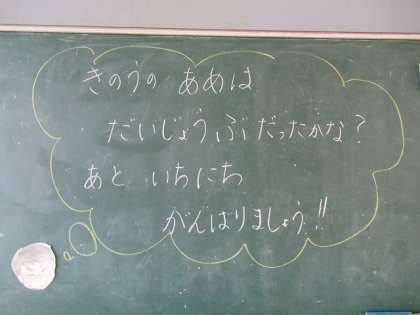 きのうの あめは
だいじょうぶだったかな?
あと いちにち
がんばりましょう!!